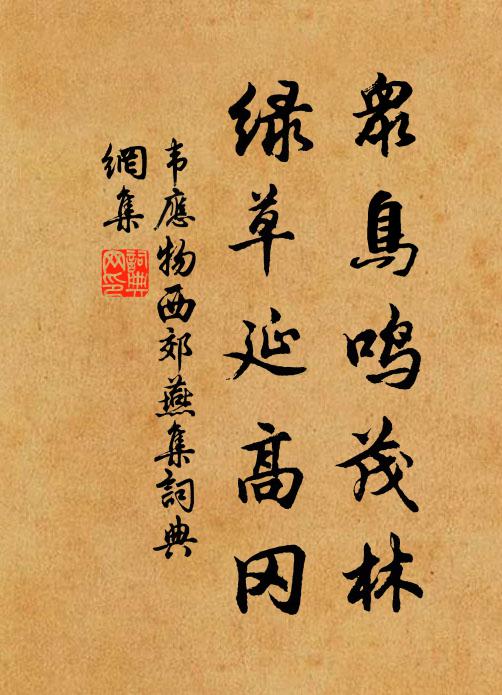 衆鳥鳴茂林
緑草延高冈
韦應物西郊燕集詞典
網集
詞典
网印